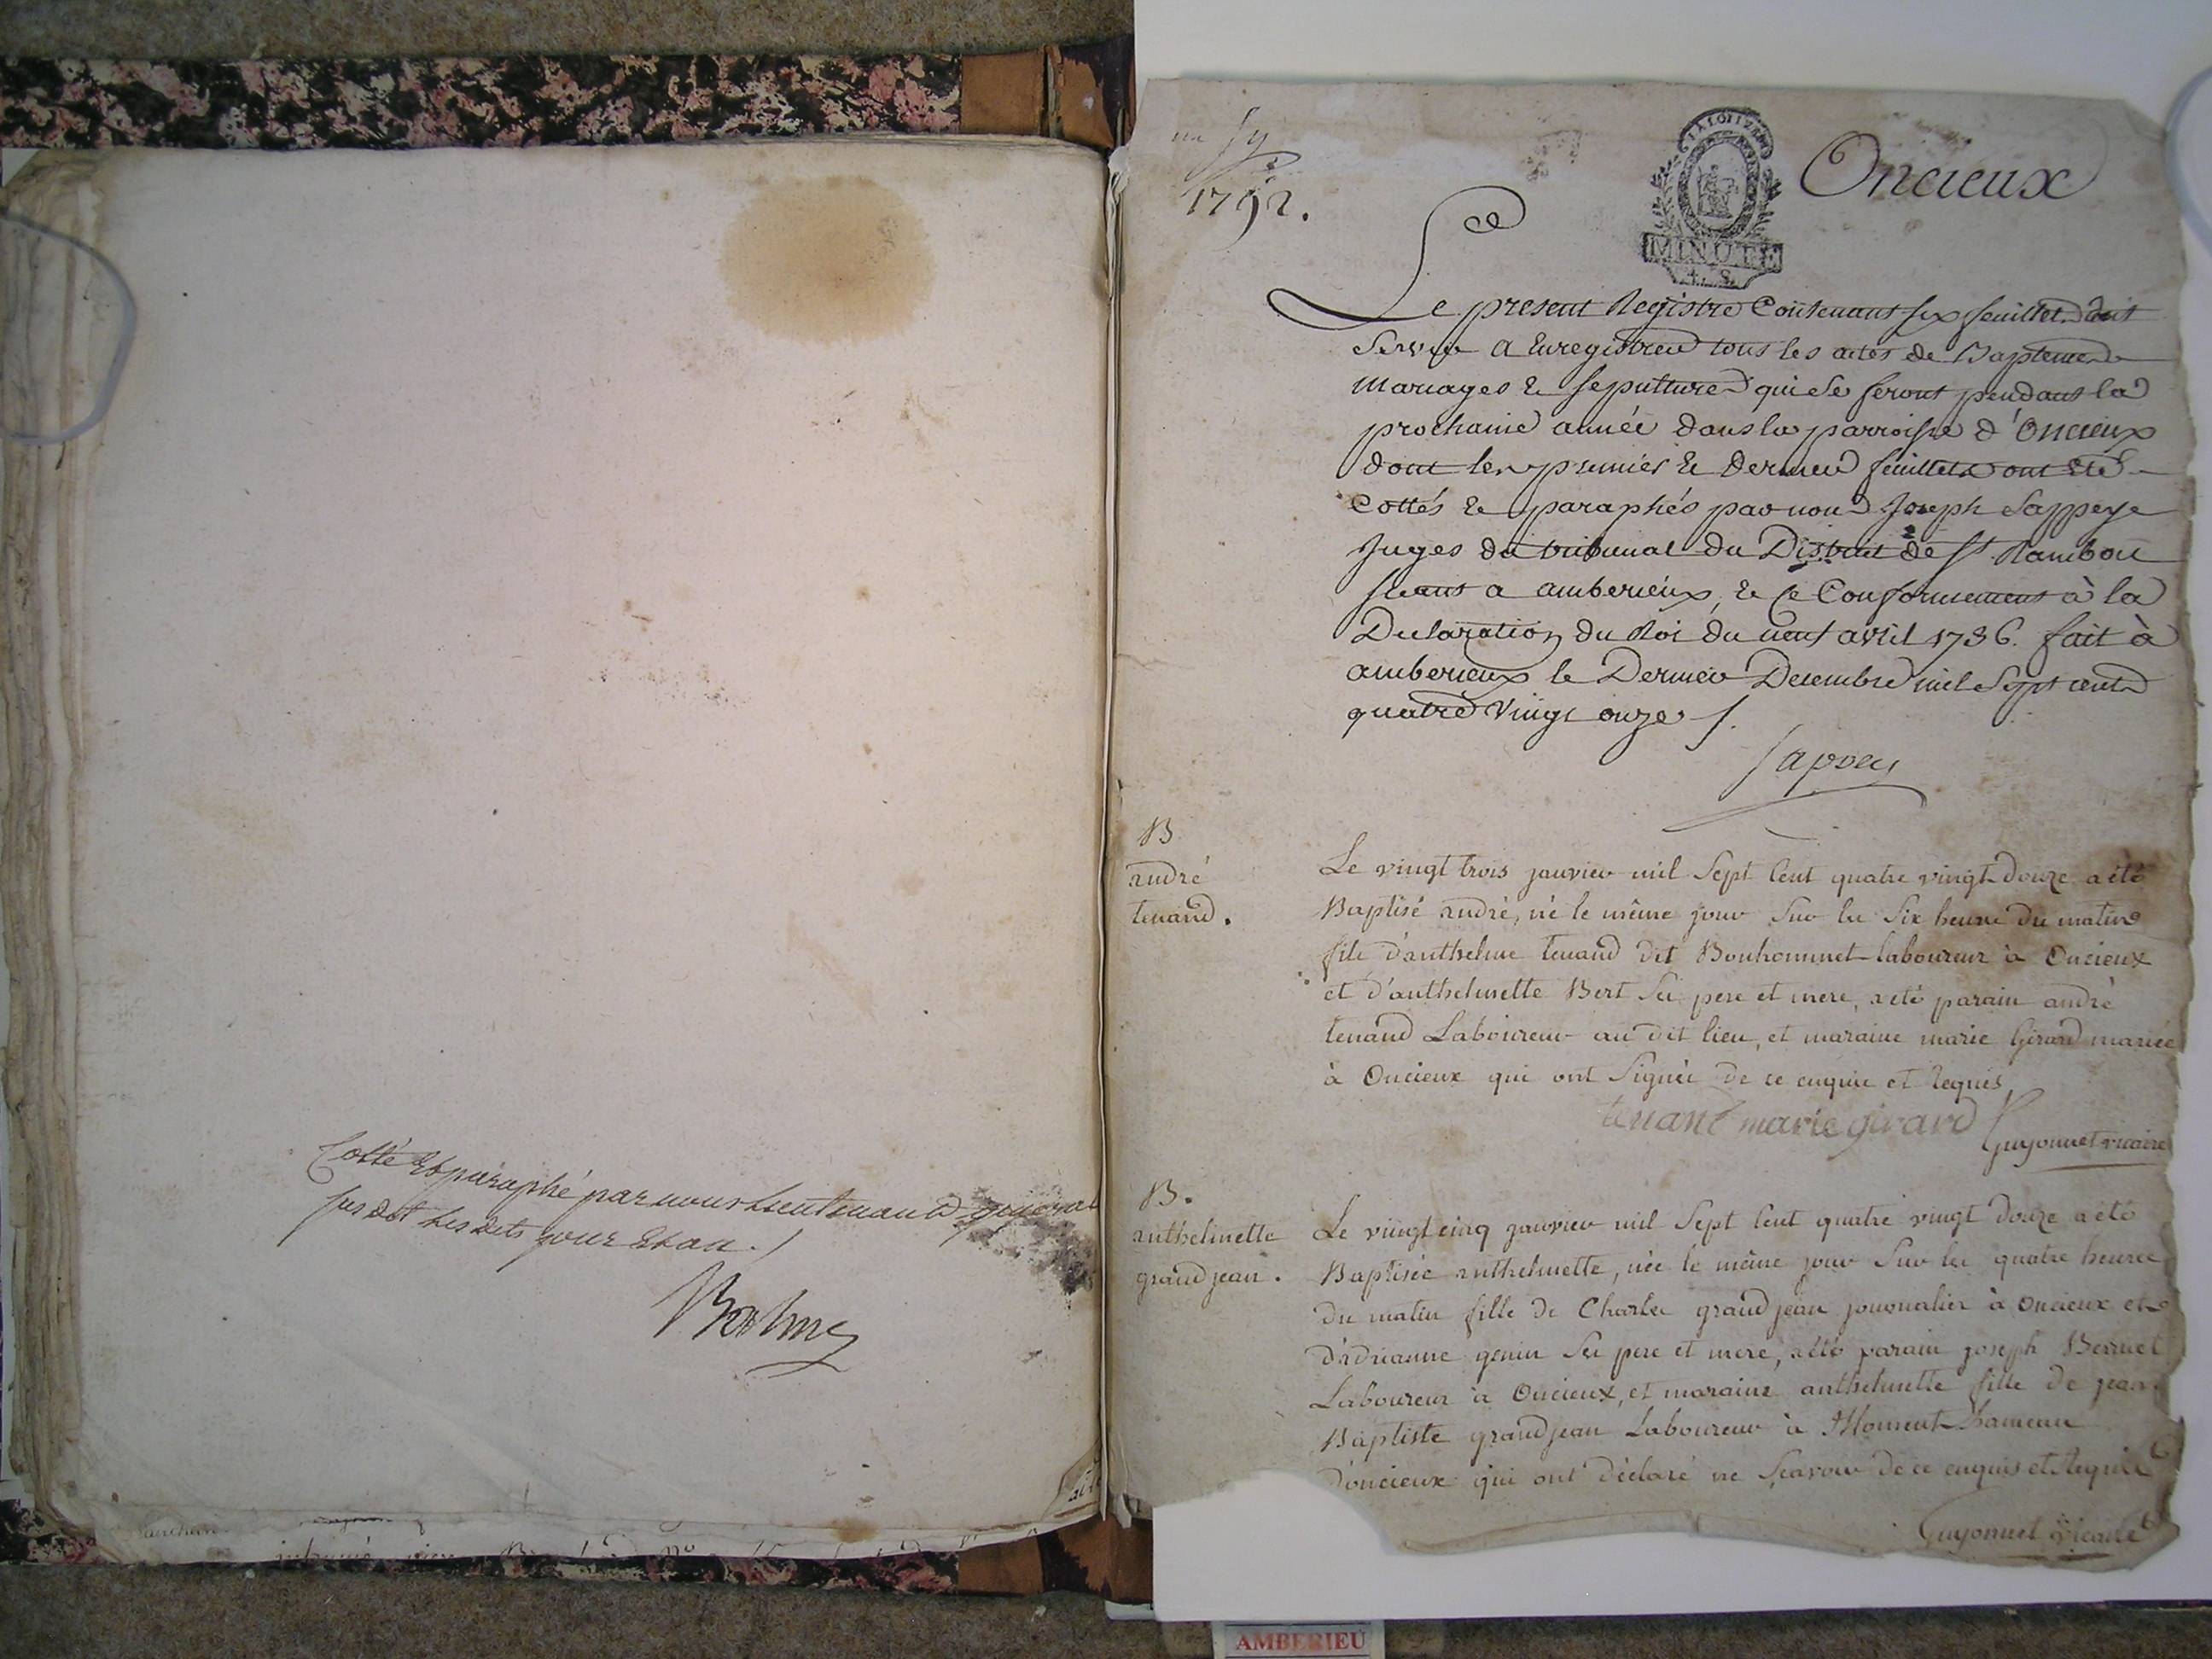 Cotté et paraphé par nous Lieutenant general
susdit les dits jour et an ./.
1792.
MINUTE
4. S.
Oncieux
Le present Registre Contenant six feuillets doit
Servir a Enregistrer tous les actes de Baptemes
Mariages & sepultures qui se feront pendant la
prochaine année dans la parroisse d'Oncieux
dont les premier & dernier feuillets ont été
Cottés & paraphés par nous Joseph Sappeye
Juges du tribunal du District de St. Rambou
séant a amberieux, & ce Conformement à la
Declaration du Roi du neuf avril 1736. fait à
amberieux le Dernier Decembre mil Sept cents
quatre Vingt onze ./.
Sappey
B
andré
tenand.
Le vingt trois janvier mil Sept Cent quatre vingt douze a été
Baptisé andré, né le même jour Sur les Six heures du matin
fils d'anthelme tenand dit Bonhommet laboureur à Oncieux
et d'anthelmette Bert Ses pere et mere, a été parain andré
tenand Laboureur au dit lieu, et maraine marie Girard mariée
à Oncieux qui ont Signés de ce enquis et Requis
tenand marie girard Guyonnet vicaire
B.
anthelmette
grand jean.
Le vingt cinq janvier mil Sept Cent quatre vingt douze a été
Baptisée anthelmette, née le même jour Sur les quatre heures
du matin fille de Charles grand jean journalier à oncieux et
d'adrianne genin Ses pere et mere, a été parain joseph Berruet
Laboureur à Oncieux, et maraine anthelmette fille de jean
Baptiste grand jean Laboureur à Moment hameau
d'oncieux qui ont déclaré ne Scavoir de ce enquis et Requis
Guyonnet Vicaire
AMBERIEU